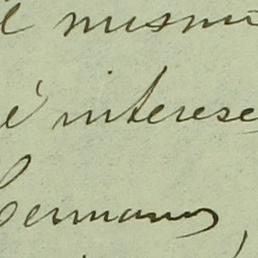 l mismo
é interese
Germans,